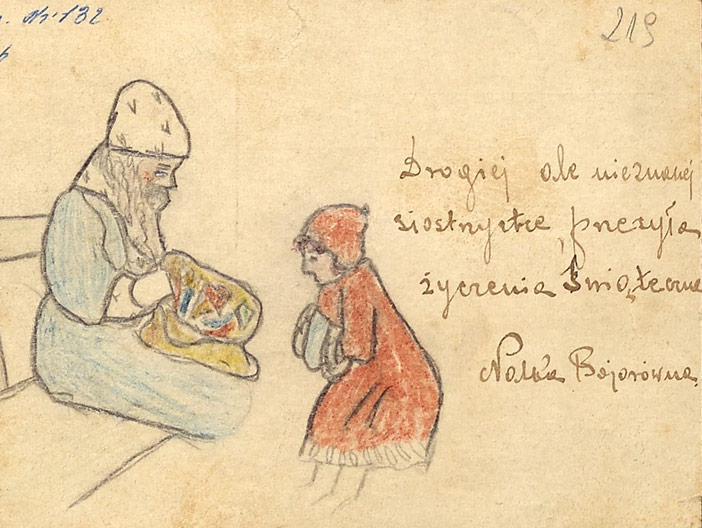 Nr. 132.
219
Drogiej ale nieznanej
siostrzyczce, przesyła
życzenia Świąteczne
Bojarówna